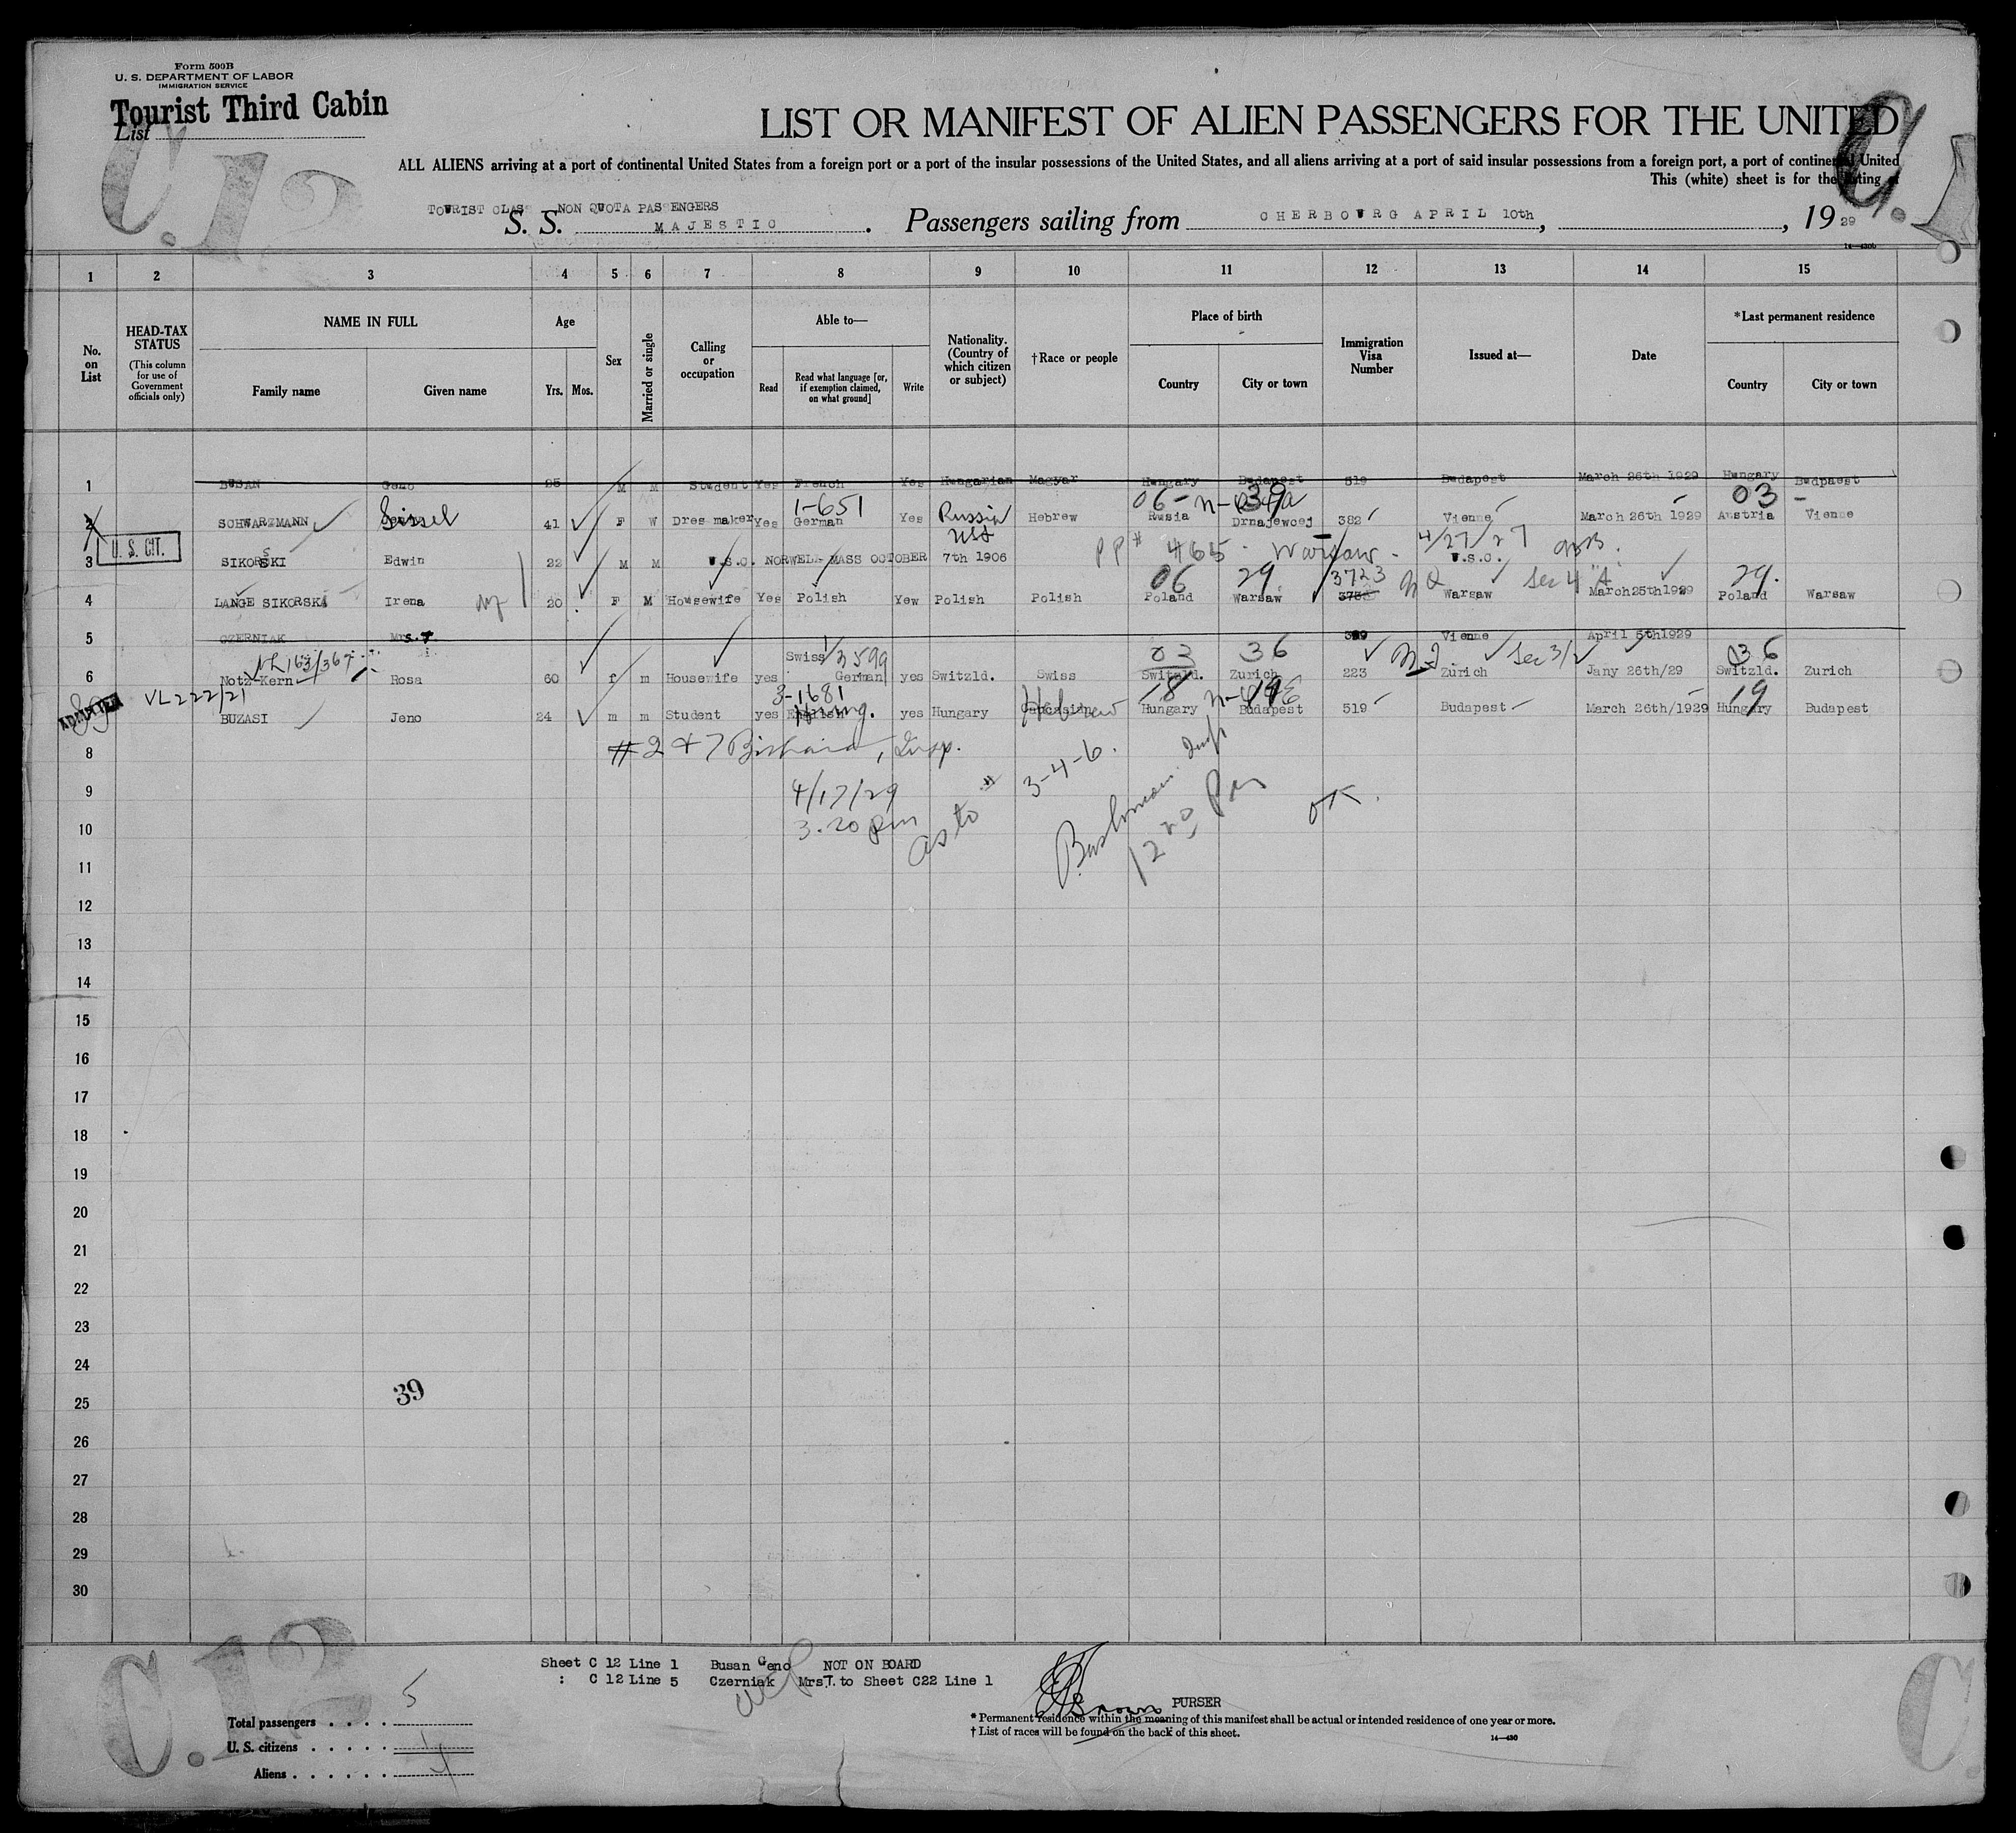 Form 500B
U. S. DEPARTMENT OF LABOR
IMMIGRATION SERVICE
Tourist Third Cabin
List
C. 12
C. 1
LIST OR MANIFEST OF ALIEN PASSENGERS FOR THE UNITED
ALL ALIENS arriving at a port of continental United States from a foreign port or a port of the insular possessions of the United States, and all aliens arriving at a port of said insular possessions from a foreign port, a port of continental United
This (white) sheet is for the listing of
TOURIST CLASS NON QUOTA PASSENGERS
S. S. MAJESTIC. Passengers sailing from CHERBOURG APRIL 10th, , 1929
14—430b
1 2 3 4 5 6 7 8 9 10 11 12 13 14 15
No. on List
HEAD-TAX STATUS (This column for use of Government officials only)
NAME IN FULL Family name Given name
Age Yrs. Mos.
Sex
Married or single
Calling or occupation
Able to— Read Read what language [or, if exemption claimed, on what ground] Write
Nationality. (Country of which citizen or subject)
†Race or people
Place of birth Country City or town
Immigration Visa Number
Issued at—
Date
*Last permanent residence Country City or town
1 BUSAN Geno 25 M M Student Yes French Yes Hungarian Magyar Hungary Budapest 519 Budapest March 26th 1929 Hungary Budpaest
1-651 06- 39 03 -
2 SCHWARZMANN Sissel 41 F W Dres maker Yes German Yes Russia Hebrew Rusia Drnajewcej 382 Vienne March 26th 1929 Austria Vienne
U. S. CIT.
USA PP# 465. Warsaw. 4/27/27
3 SIKORSKI Edwin 22 M M U.S.C. NORWELL MASS OCTOBER 7th 1906 U.S.C.
06 29 3723 NQ Sec 4 "A" 29.
4 LANGE SIKORSKA Irena 20 F M Housewife Yes Polish Yew Polish Polish Poland Warsaw 3758 Warsaw March25th1929 Poland Warsaw
5 CZERNIAK Mrs. T. 399 Vienne April 5th1929
163/367 3599 23 36 Sec 3/2 36
6 Notz-Kern Rosa 60 f m Housewife yes Swiss German yes Switzld. Swiss Switzld. Zurich 223 Zürich Jany 26th/29 Switzld. Zurich
ADMITTED VL222/21 3-1681 Hung. Hebrew 19 19
BUZASI Jeno 24 m m Student yes English yes Hungary Hungary Budapest 519 Budapest March 26th/1929 Hungary Budapest
8 #2 & 7 Insp.
9 4/17/29 as to # 3-4-6.
10 3.20 pm OK.
11
12
13
14
15
16
17
18
19
20
21
22
23
24
25 39
26
27
28
29
30
C. 12
C
Sheet C 12 Line 1 Busan Geno NOT ON BOARD
: C 12 Line 5 Czerniak Mrs T. to Sheet C22 Line 1
PURSER
Total passengers . . . . 5
U. S. citizens . . . . . 1
Aliens . . . . . . 4
* Permanent residence within the meaning of this manifest shall be actual or intended residence of one year or more.
† List of races will be found on the back of this sheet.
14—430